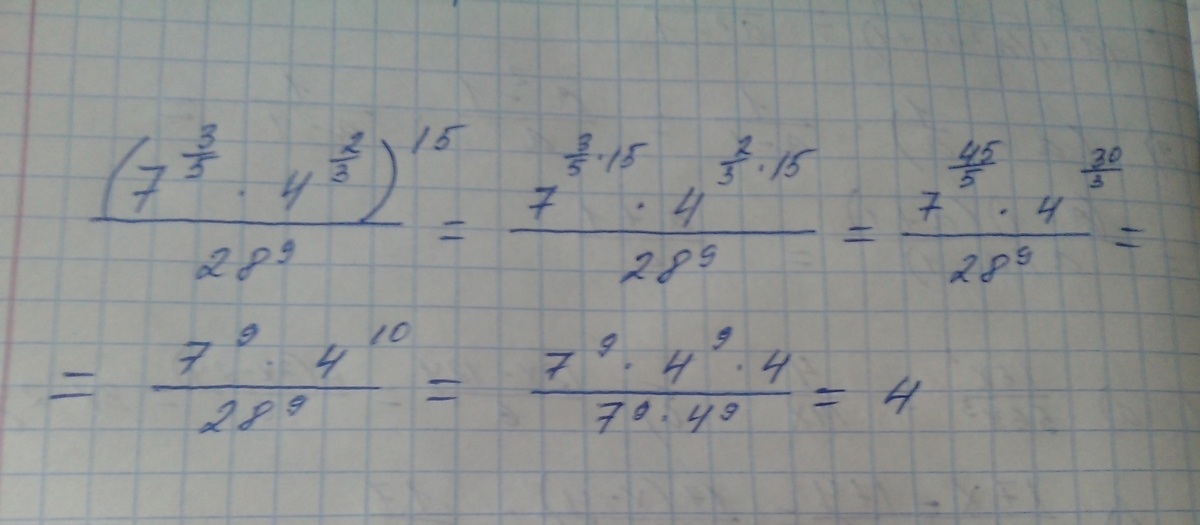 (7^(3/5) · 4^(2/3))^15 / 28^9 = 7^(3/5 · 15) · 4^(2/3 · 15) / 28^9 = 7^(45/5) · 4^(30/3) / 28^9 =
= 7^9 · 4^10 / 28^9 = 7^9 · 4^9 · 4 / 7^9 · 4^9 = 4